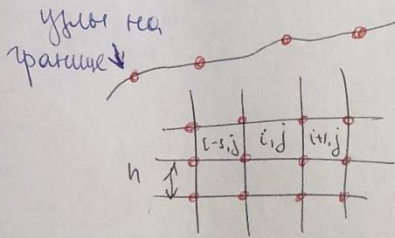 узлы на
границе
i-1,j i,j i+1,j
h